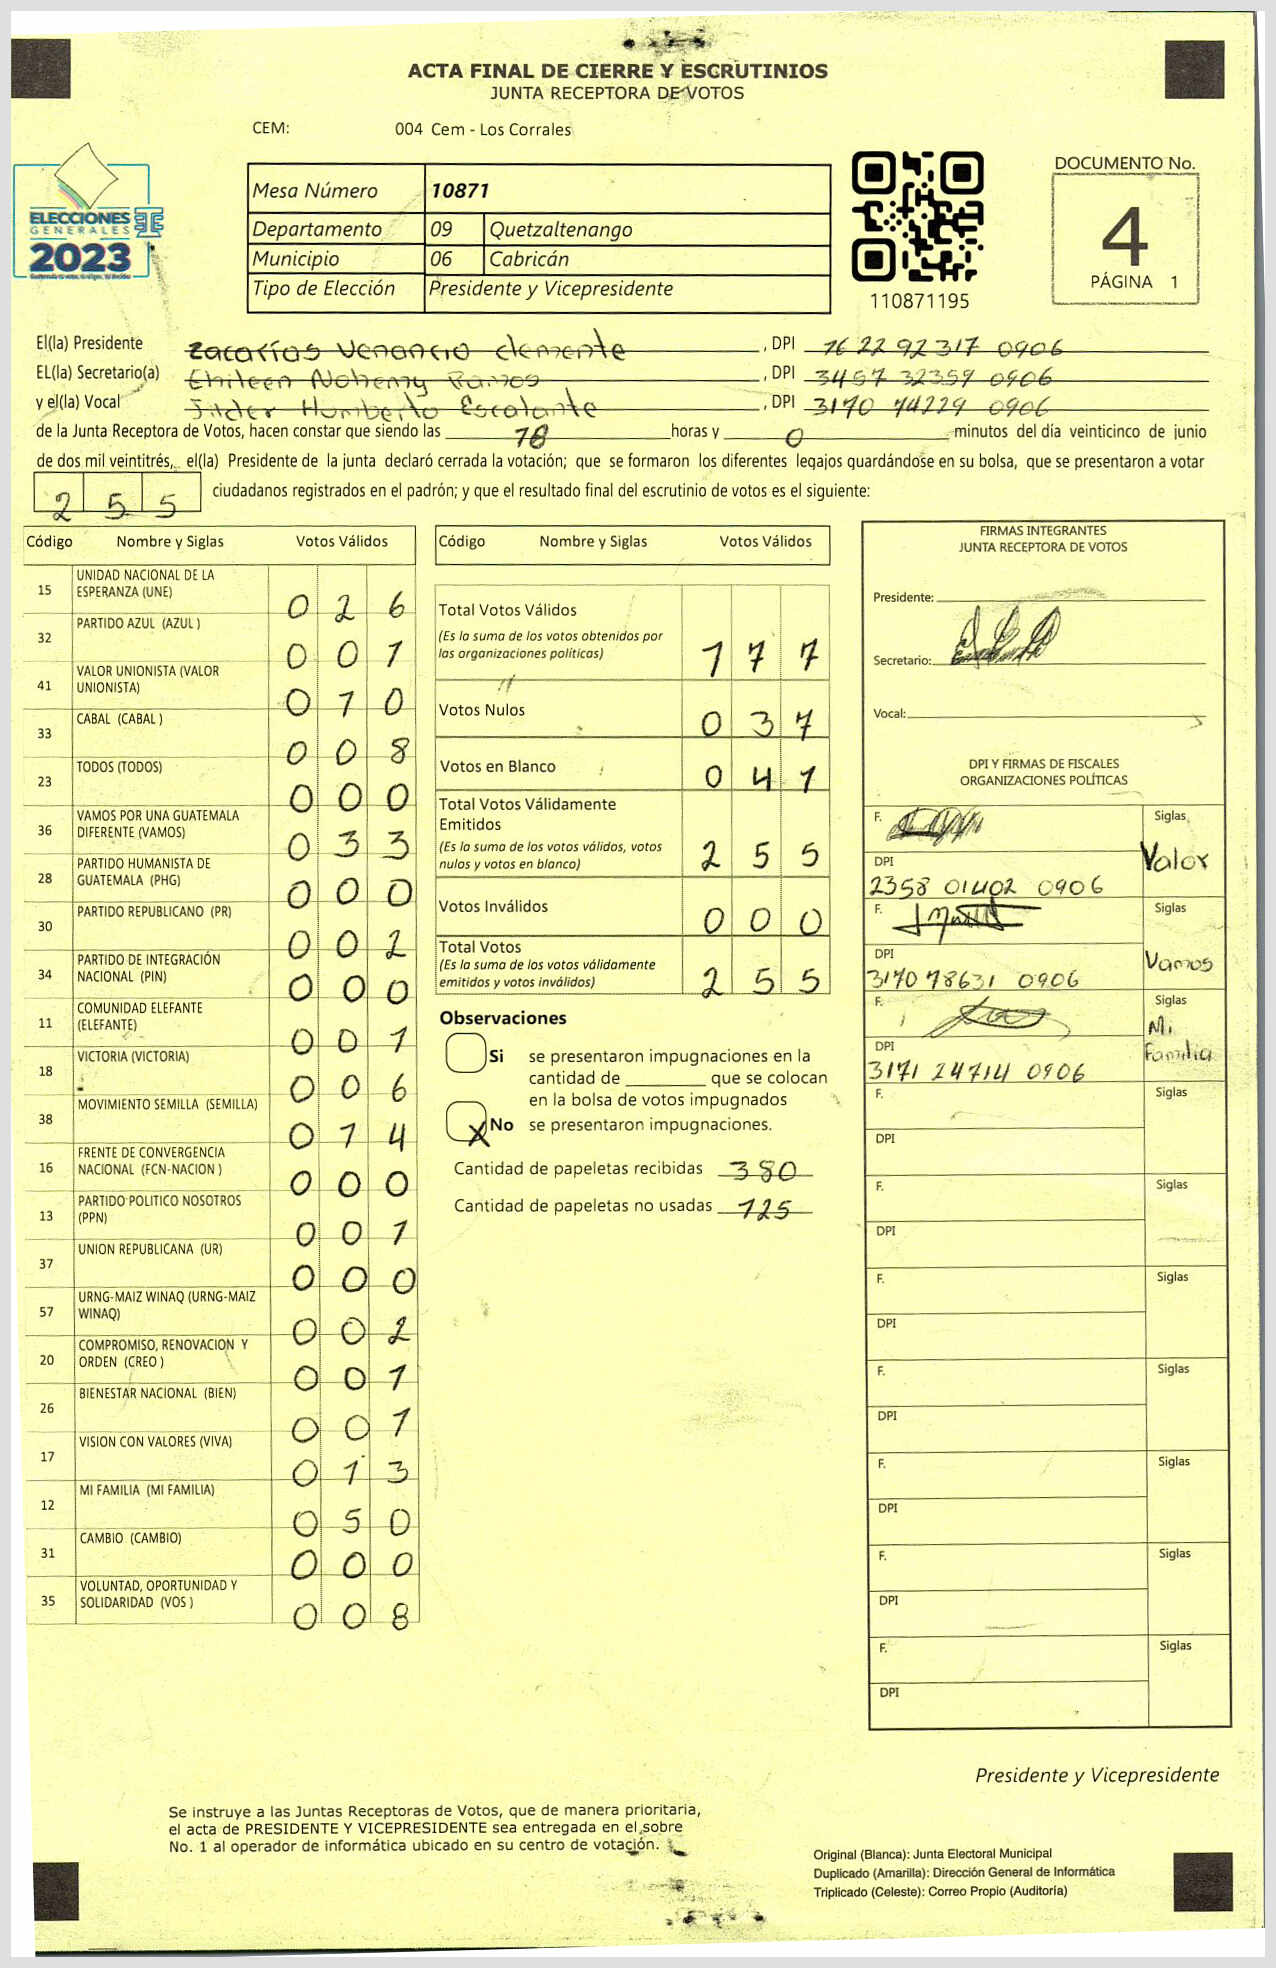 ACTA FINAL DE CIERRE Y ESCRUTINIOS
JUNTA RECEPTORA DE VOTOS
CEM: 004 Cem - Los Corrales
ELECCIONES
GENERALES
2023
Mesa Número 10871
Departamento 09 Quetzaltenango
Municipio 06 Cabricán
Tipo de Elección Presidente y Vicepresidente
110871195
DOCUMENTO No.
4
PÁGINA 1
El(la) Presidente Zacarías Venancio clemente, DPI 1622 92317 0906
EL(la) Secretario(a) Ehileen Nohemy Ramos, DPI 3457 32359 0906
y el(la) Vocal Jilder Humberto Escalante, DPI 3170 74229 0906
de la Junta Receptora de Votos, hacen constar que siendo las 18 horas y 0 minutos del día veinticinco de junio
de dos mil veintitrés, el(la) Presidente de la junta declaró cerrada la votación; que se formaron los diferentes legajos quardándose en su bolsa, que se presentaron a votar
255 ciudadanos registrados en el padrón; y que el resultado final del escrutinio de votos es el siguiente:
Código Nombre y Siglas Votos Válidos
15 UNIDAD NACIONAL DE LA ESPERANZA (UNE) 026
32 PARTIDO AZUL (AZUL ) 001
41 VALOR UNIONISTA (VALOR UNIONISTA) 010
33 CABAL (CABAL ) 008
23 TODOS (TODOS) 000
36 VAMOS POR UNA GUATEMALA DIFERENTE (VAMOS) 033
28 PARTIDO HUMANISTA DE GUATEMALA (PHG) 000
30 PARTIDO REPUBLICANO (PR) 002
34 PARTIDO DE INTEGRACIÓN NACIONAL (PIN) 000
11 COMUNIDAD ELEFANTE (ELEFANTE) 001
18 VICTORIA (VICTORIA) 006
38 MOVIMIENTO SEMILLA (SEMILLA) 014
16 FRENTE DE CONVERGENCIA NACIONAL (FCN-NACION ) 000
13 PARTIDO POLITICO NOSOTROS (PPN) 001
37 UNION REPUBLICANA (UR) 000
57 URNG-MAIZ WINAQ (URNG-MAIZ WINAQ) 002
20 COMPROMISO, RENOVACION Y ORDEN (CREO ) 001
26 BIENESTAR NACIONAL (BIEN) 001
17 VISION CON VALORES (VIVA) 013
12 MI FAMILIA (MI FAMILIA) 050
31 CAMBIO (CAMBIO) 000
35 VOLUNTAD, OPORTUNIDAD Y SOLIDARIDAD (VOS ) 008
Código Nombre y Siglas Votos Válidos
Total Votos Válidos
(Es la suma de los votos obtenidos por
las organizaciones políticas) 177
Votos Nulos 037
Votos en Blanco 041
Total Votos Válidamente
Emitidos
(Es la suma de los votos válidos, votos
nulos y votos en blanco) 255
Votos Inválidos 000
Total Votos
(Es la suma de los votos válidamente
emitidos y votos inválidos) 255
Observaciones
Si se presentaron impugnaciones en la
cantidad de ________ que se colocan
en la bolsa de votos impugnados
X No se presentaron impugnaciones.
Cantidad de papeletas recibidas 380
Cantidad de papeletas no usadas 125
FIRMAS INTEGRANTES
JUNTA RECEPTORA DE VOTOS
Presidente:
Secretario:
Vocal:
DPI Y FIRMAS DE FISCALES
ORGANIZACIONES POLÍTICAS
F. Siglas
Valor
DPI
2358 01402 0906
F. Siglas
Vamos
DPI
3170 78631 0906
F. Siglas
Mi
Familia
DPI
3171 24714 0906
F. Siglas
DPI
F. Siglas
DPI
F. Siglas
DPI
F. Siglas
DPI
F. Siglas
DPI
F. Siglas
DPI
F. Siglas
DPI
Presidente y Vicepresidente
Se instruye a las Juntas Receptoras de Votos, que de manera prioritaria,
el acta de PRESIDENTE Y VICEPRESIDENTE sea entregada en el sobre
No. 1 al operador de informática ubicado en su centro de votación.
Original (Blanca): Junta Electoral Municipal
Duplicado (Amarilla): Dirección General de Informática
Triplicado (Celeste): Correo Propio (Auditoría)